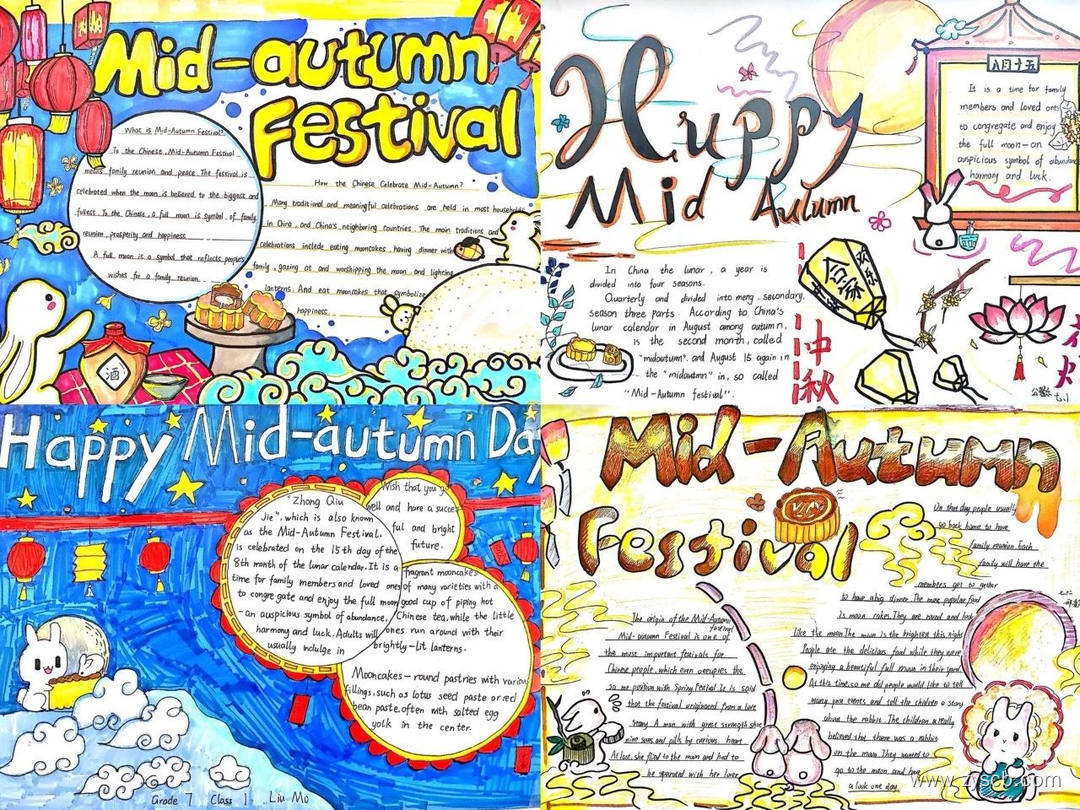 Mid-autumn
Festival
What is Mid-Autumn Festival?
To the Chinese, Mid-Autumn Festival
means family reunion and peace. The festival is
celebrated when the moon is believed to be the biggest and
fullest. To the Chinese, a full moon is symbol of family
reunion, prosperity and happiness
A full moon is a symbol that reflects people's
wishes for a family reunion.
How the Chinese Celebrate Mid-Autumn?
Many traditional and meaningful celebrations are held in most households
in China, and China's neighboring countries. The main traditions and
celebrations include eating mooncakes, having dinner with
family, gazing at and worshipping the moon, and lighting
lanterns. And eat mooncakes that symbolize
happiness.
酒
Happy
Mid Autumn
八月十五
It is a time for family
members and loved ones
to congregate and enjoy
the full moon-an
auspicious symbol of abundance
harmony and luck.
合家
欢乐
In China the lunar, a year is
divided into four seasons.
Quarterly and divided into meng, secondary,
season three parts. According to China's
lunar calendar in August among autumn,
is the second month, called
"midautumn", and August 15 again in
the "midautumn" in, so called
"Mid-Autumn festival".
中
秋
七.1
Happy Mid-autumn Day
"Zhong Qiu
Jie", which is also known
as the Mid-Autumn Festival,
is celebrated on the 15th day of the
8th month of the lunar calendar. It is a
time for family members and loved ones
to congregate and enjoy the full moon
-an auspicious symbol of abundance,
harmony and luck. Adults will
usually indulge in
Wish that you go
well and have a succe
ful and bright
future.
fragrant mooncakes
of many varieties with a
good cup of piping hot
Chinese tea, while the little
ones run around with their
brightly-lit lanterns.
Mooncakes-round pastries with various
fillings, such as lotus seed paste or red
bean paste, often with salted egg
yolk in the center.
Grade 7 Class 1 Liu Mo
Mid-Autumn
Festival
The origin of the Mid-Autumn
festival
Mid-autumn Festival is one of
the most important festivals for
Chinese people, which even occupies the
same position with Spring Festival. It is said
that the festival originated from a love
story. A man with great strength she
nine suns and pills by curious heart.
At last, she flied to the moon and had to
be separated with her lover
On that day people usually
go back home to have
family reunion. Each
family will have the
members get to gether
to have a big dinner. The most popular food
is moon cakes. They are round and look
like the moon. The moon is the brightest this night
People eat the delicious food while they were
enjoying a beautiful full moon in their yard.
At this time, some old people would like to tell
many past events and tell the children a story
about the rabbit. The children really
believed that there was a rabbit
on the moon. They wanted to
go to the moon and have
a look one day.
www.zyscb.com